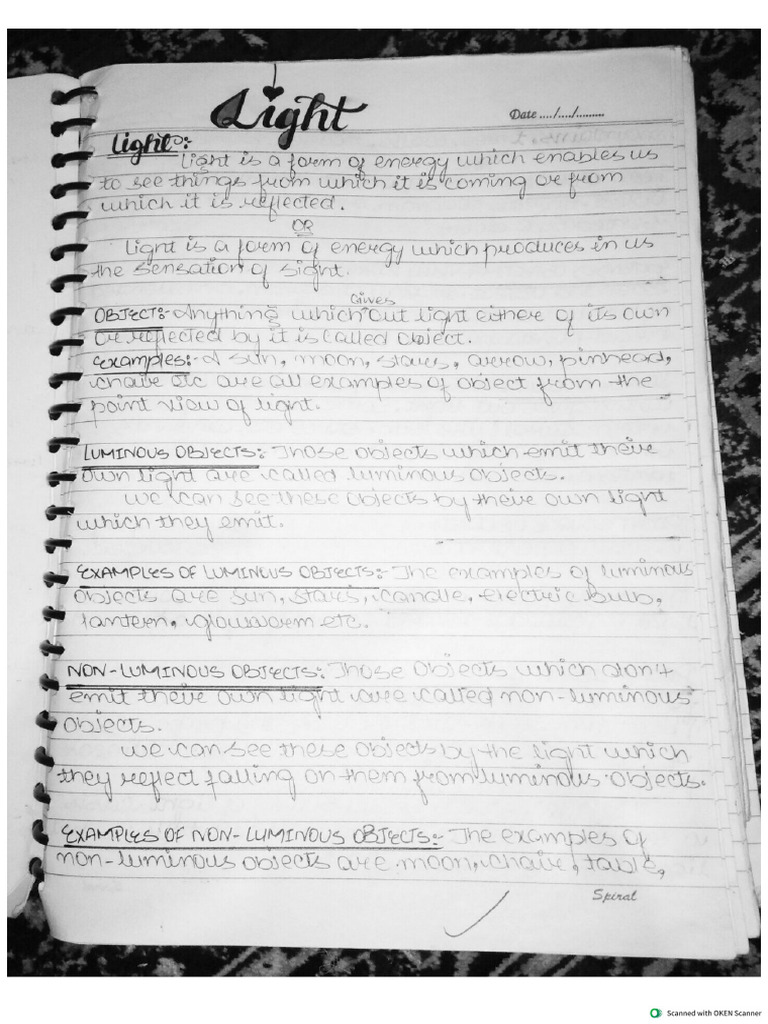 Light
Date ..../..../.........
Light:
Light is a form of energy which enables us
to see things from which it is coming or from
which it is reflected.
OR
Light is a form of energy which produces in us
the sensation of sight.
Gives
OBJECT:- Anything which out light either of its own
or reflected by it is called object.
Examples:- A sun, moon, stars, arrow, pinhead,
chair etc are all examples of object from the
point view of light.
LUMINOUS OBJECTS:- Those objects which emit their
own light are called luminous objects.
we can see these objects by their own light
which they emit.
EXAMPLES OF LUMINOUS OBJECTS:- The examples of luminous
objects are sun, stars, candle, electric bulb,
lantern, glowworm etc.
NON-LUMINOUS OBJECTS:- Those objects which don't
emit their own light are called non-luminous
objects.
we can see these objects by the light which
they reflect falling on them from luminous objects.
EXAMPLES OF NON-LUMINOUS OBJECTS:- The examples of
non-luminous objects are moon, chair, table,
Spiral
Scanned with OKEN Scanner